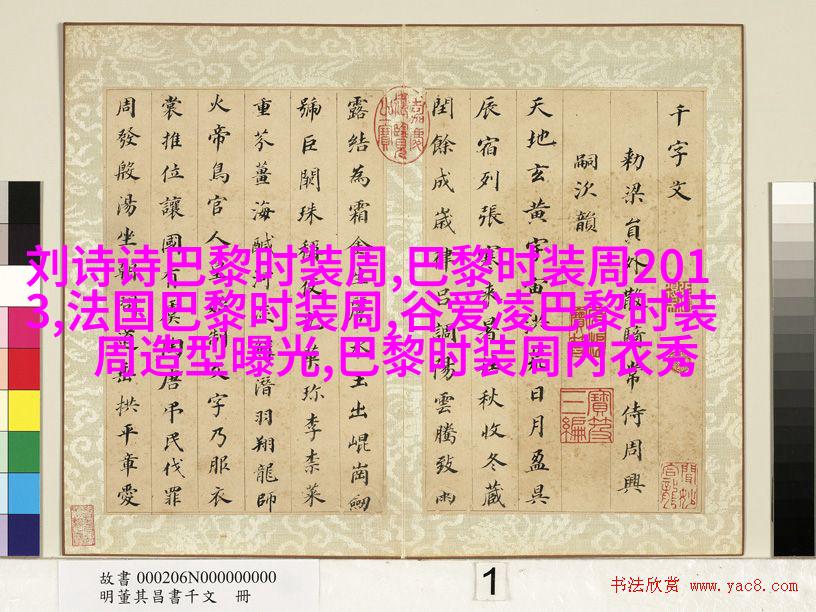 刘诗诗巴黎时装周,巴黎时装周201
3,法国巴黎时装周,谷爱凌巴黎时装
周造型曝光,巴黎时装周内衣秀
千字文
勅梁員外散騎常侍周興
嗣次韻
天地玄黃宇宙洪荒日月盈昃
辰宿列張寒來暑往秋收冬藏
閏餘成歲律呂調陽雲騰致雨
露結為霜金生麗水玉出崐崗劍
號巨闕珠稱夜光菓珍李柰菜
重芥薑海鹹河淡鱗潛羽翔龍師
火帝鳥官人皇始制文字乃服衣
裳推位讓國有虞陶唐弔民伐罪
周發殷湯坐朝問道垂拱平章愛
寶笈
三編
故書 000206N000000000
明董其昌書千文 冊
1
书法欣赏 www.yac8.com